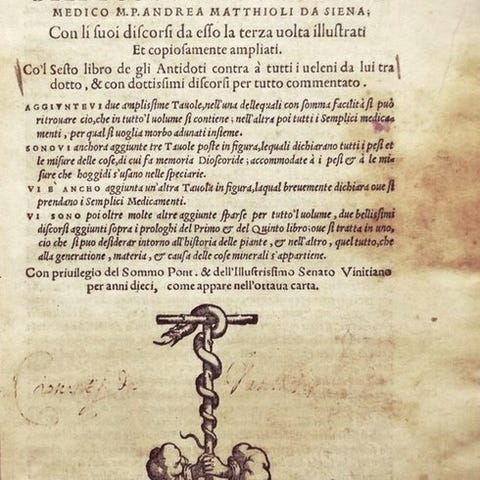 MEDICO M.P. ANDREA MATTHIOLI DA SIENA;
Con li suoi discorsi da esso la terza uolta illustrati
Et copiosamente ampliati.
Co'l Sesto libro de gli Antidoti contra à tutti i ueleni da lui tra
dotto, & con dottissimi discorsi per tutto commentato.
AGGIVNTEVI due amplissime Tauole, nell'una dellequali con somma facilità si può
ritrouare cio, che in tutto'l uolume si contiene; nell'altra poi tutti i Semplici medica-
menti, per qual si uoglia morbo adunati insieme.
SONOVI anchora aggiunte tre Tauole poste in figura, lequali dichiarano tutti i pesi et
le misure delle cose, di cui fa memoria Dioscoride; accommodate à i pesi & à le mi-
sure che hoggidi s'usano nelle speciarie.
VI E' ANCHO aggiunta un'altra Tauola in figura, laqual breuemente dichiara oue si
prendano i Semplici Medicamenti.
VI SONO poi oltre molte altre aggiunte sparse per tutto'l uolume, due bellissimi
discorsi aggiunti sopra i prologhi del Primo & del Quinto libro; oue si tratta in uno,
cio che si puo desiderar intorno all'historia delle piante, & nell'altro, quel tutto, che
alla generatione, materia, & causa delle cose minerali s'appartiene.
Con priuilegio del Sommo Pont. & dell'Illustrissimo Senato Vinitiano
per anni dieci, come appare nell'ottaua carta.